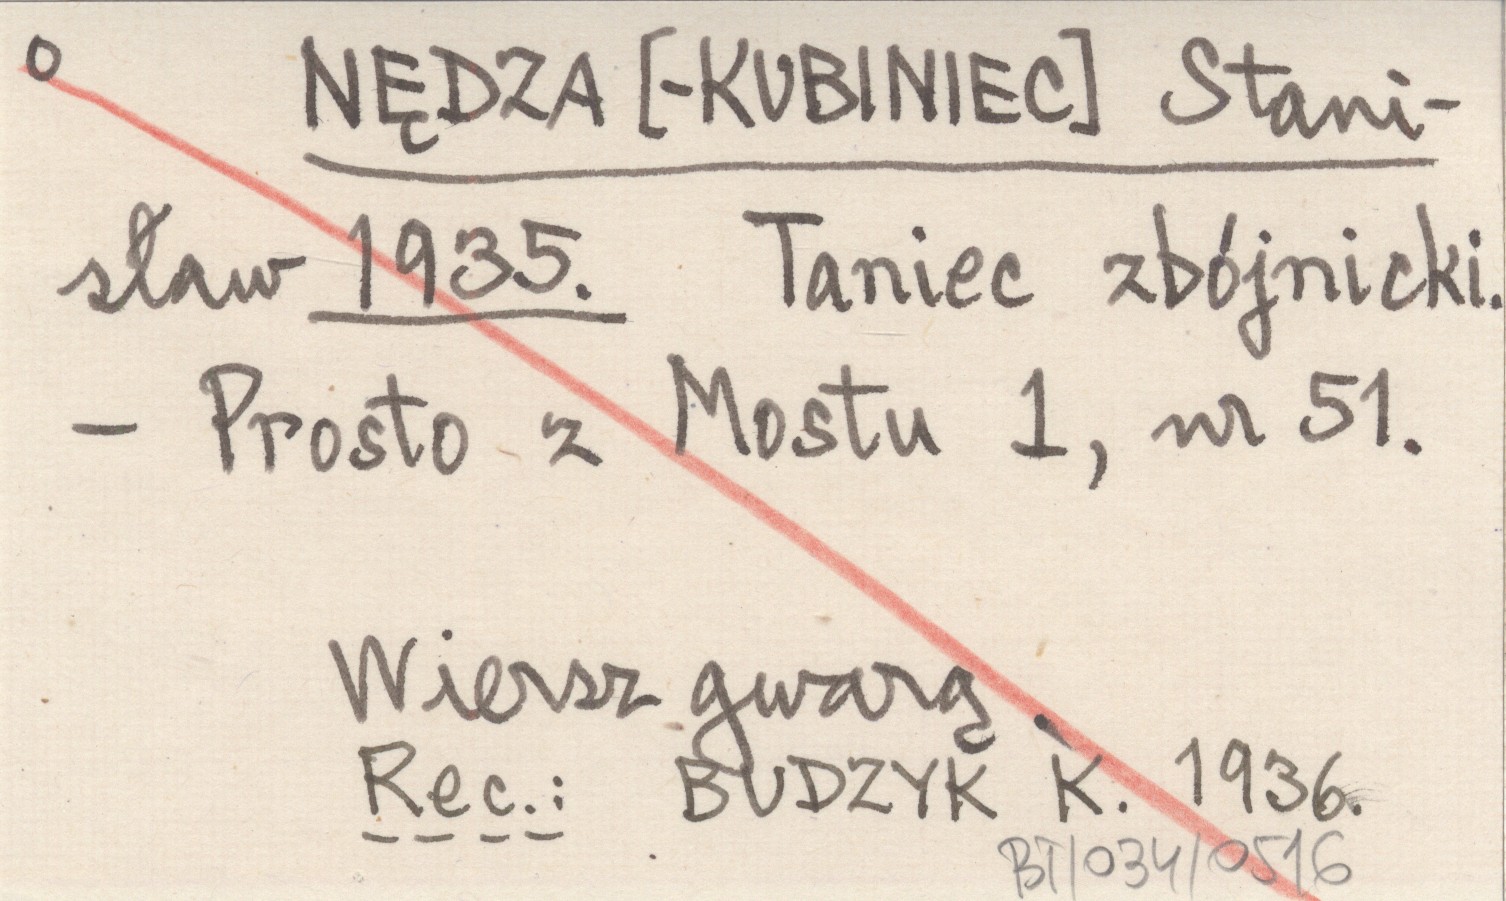 NĘDZA [-KUBINIEC] Stani-
sław 1935. Taniec zbójnicki.
- Prosto z Mostu 1, nr 51.
Wiersz gwarą.
Rec.: BUDZYK K. 1936.
BT/034/0516